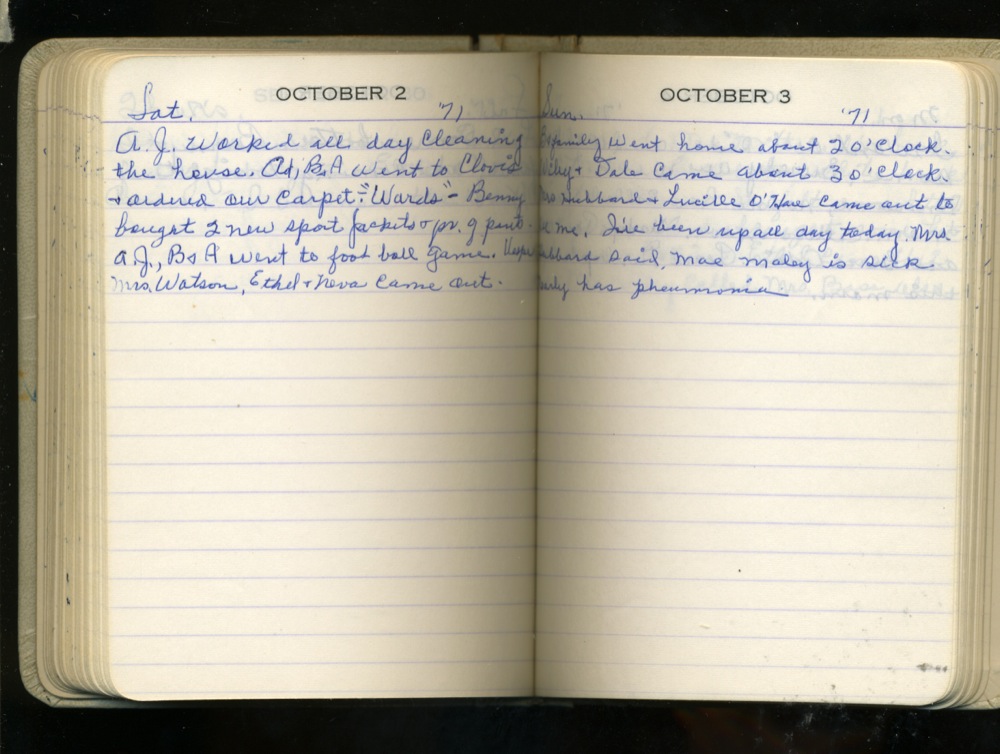 OCTOBER 2
Sat. '71
A.J. Worked all day Cleaning
the house. Ad, B, A went to Clovis
+ ordered our Carpet "Wards" - Benny
bought 2 new sport jackets + pr. of pants.
A.J., B + A went to foot ball game.
Mrs. Watson, Ethel + Neva Came out.
OCTOBER 3
Sun. '71
family went home about 2 O'Clock.
+ Dale Came about 3 O'Clock.
Hubbard + Lucille O'Hare came out to
me. I've been up all day today. Mrs.
said, Mae Maley is sick
has pneumonia